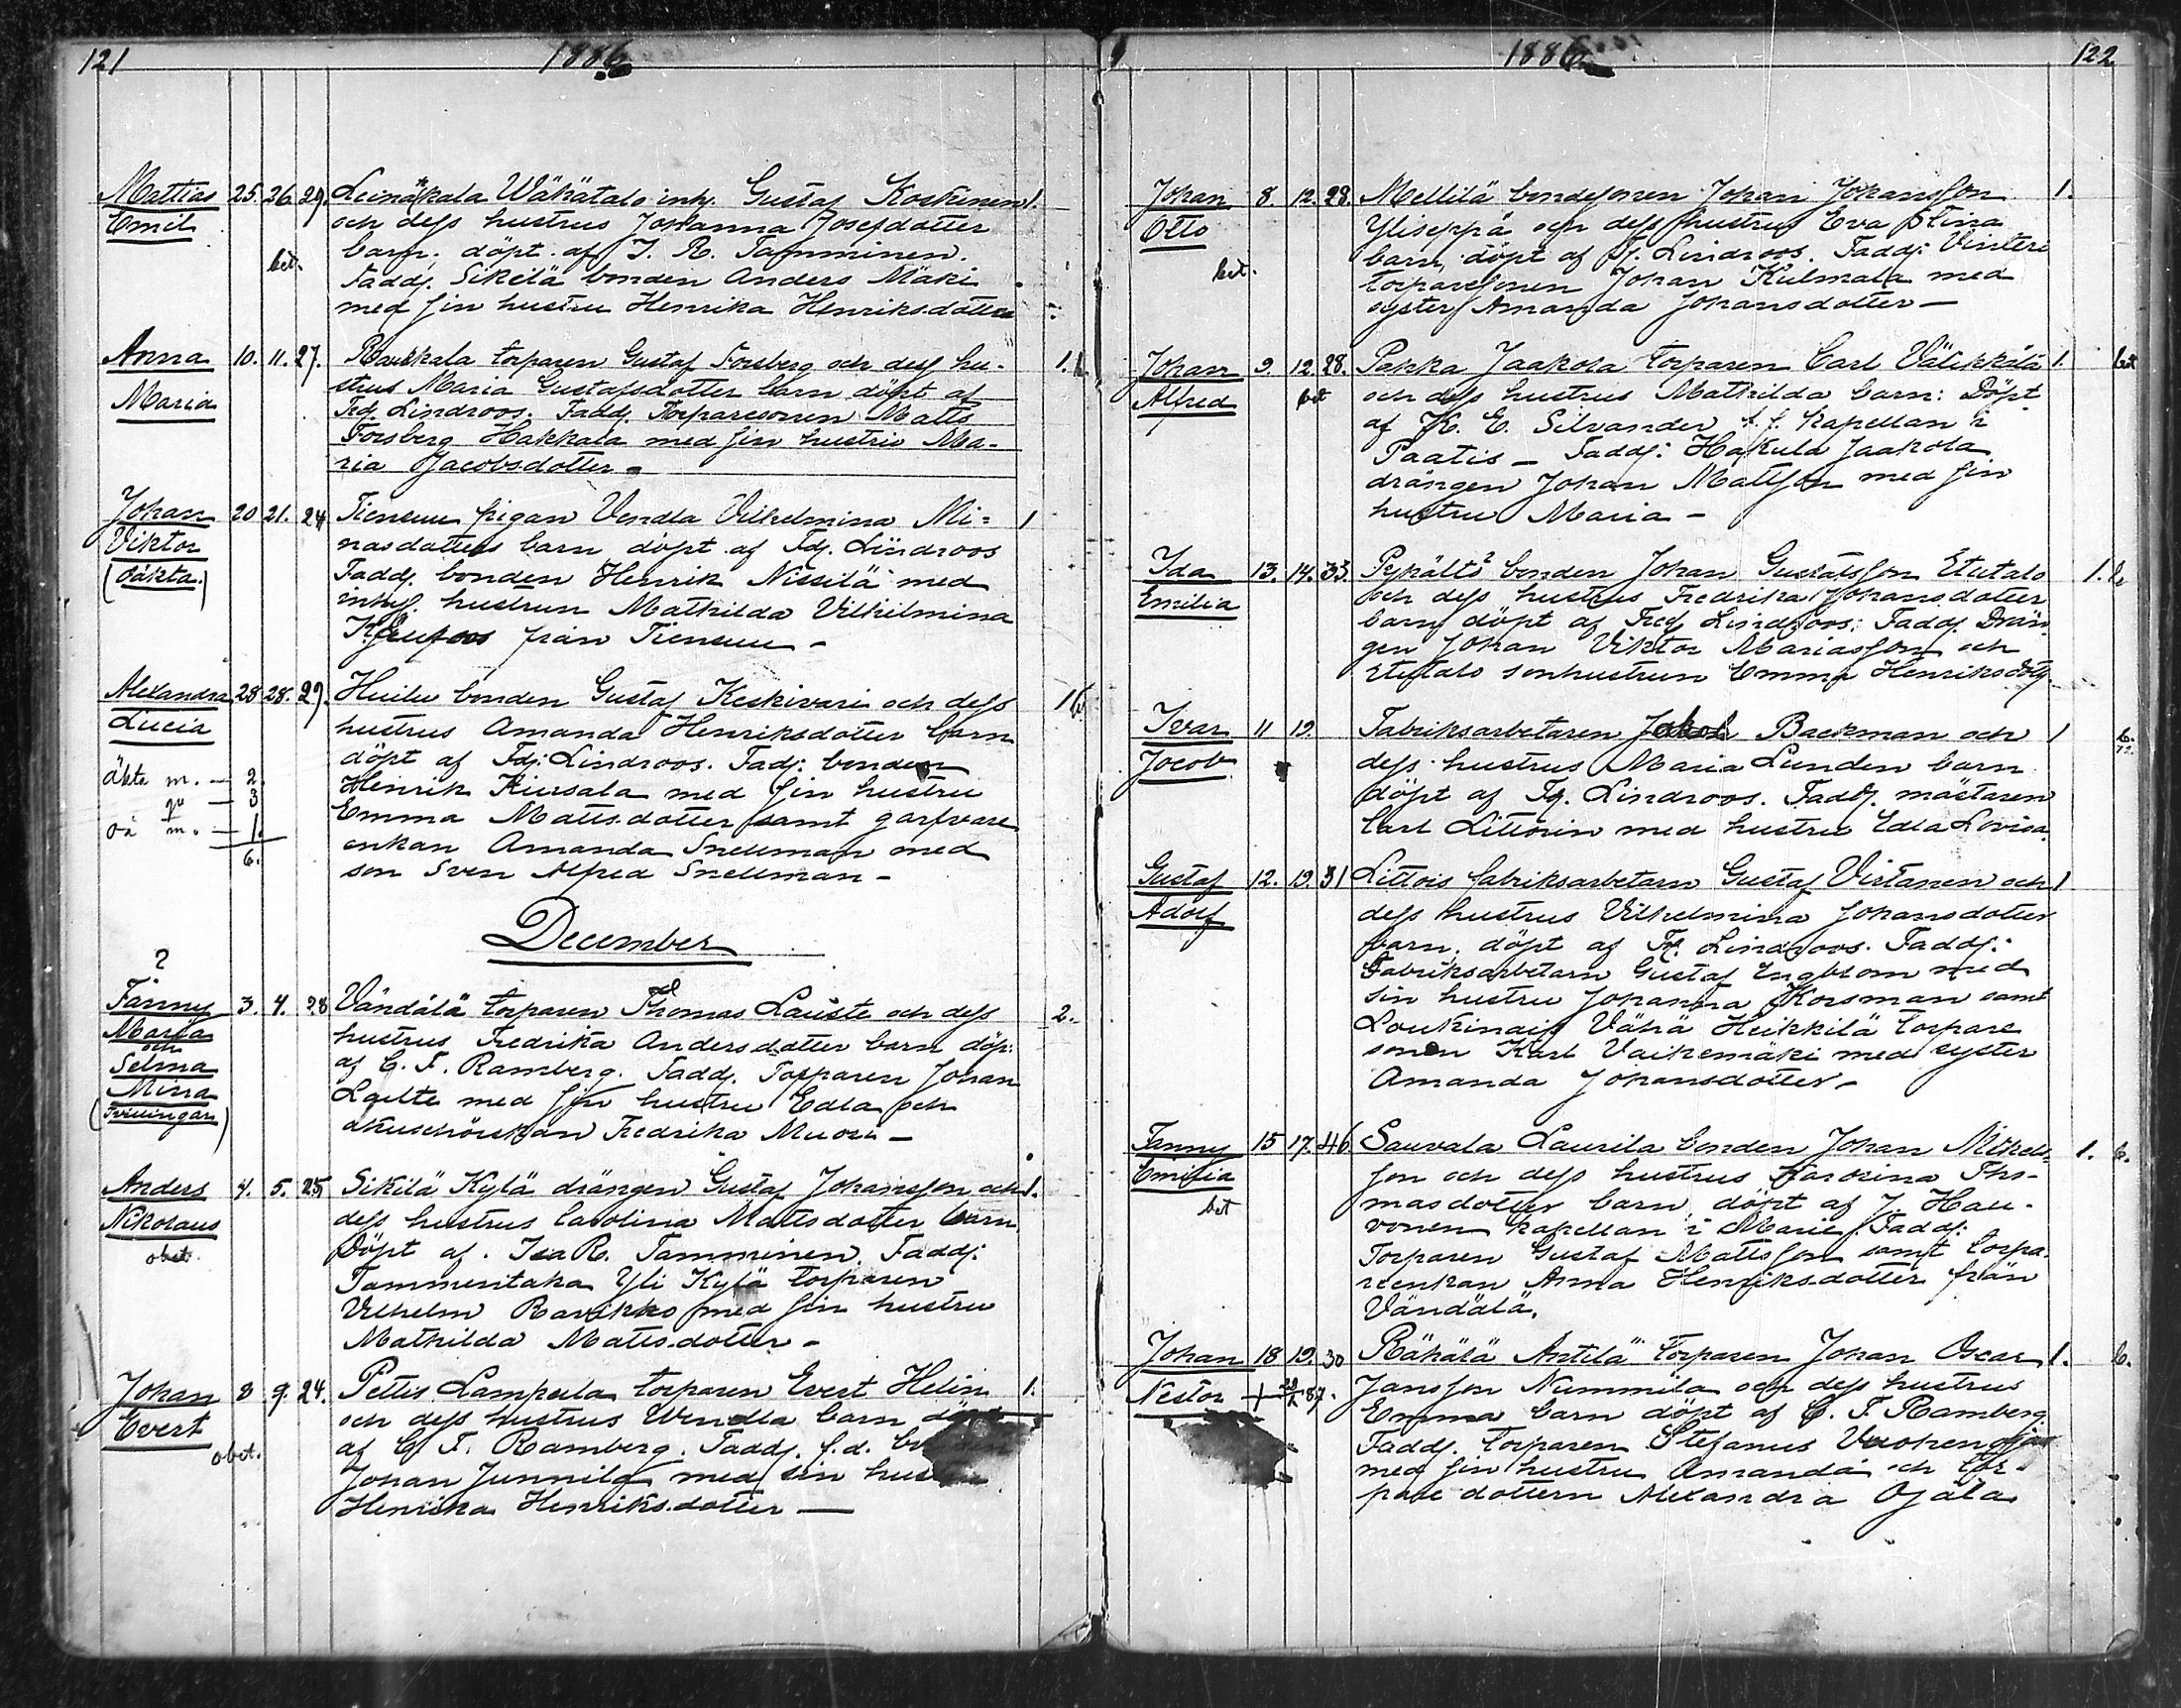 121
1886
Mattias 25. 26. 29. Leinäkkala Wähätalo inh. Gustaf Koskinen 1.
Emil och dess hustrus Johanna Josefsdotter
barn. döpt af J. R. Tamminen.
bet. Fadd. Sikilä bonden Anders Mäki
med sin hustru Henrika Henriksdotter
Anna 10. 11. 27. Raukkala torparen Gustaf Forsberg och dess hu- 1. b.
Maria strus Maria Gustafsdotter barn döpt af
Frg. Lindroos. Fadd. Torparesonen Matts
Forsberg Hakkala med sin hustru Ma-
ria Jacobsdotter -
Johan 20 21. 24 Tiensuu pigan Vendla Vilhelmina Mi- 1
Viktor nasdotters barn döpt af Fdj. Lindroos
(oäkta.) Fadd. bonden Henrik Nissilä med
inhys. hustrun Mathilda Vilhelmina
från Tiensuu -
Alexandra 28 28. 29. Huilu bonden Gustaf Keskivari och dess 1 b.
Lucia hustrus Amanda Henriksdotter barn
döpt af Fdj. Lindroos. Fadj. bonden
äkta m. - 2. Henrik Kiursala med sin hustru
qv - 3 Emma Mattsdotter samt garfvare
oä m. - 1. enkan Amanda Snellman med
6. son Sven Alfred Snellman -
December
2
Fanny 3. 4. 28 Vändälä torparen Thomas Lauste och dess 2.
Maria hustrus Fredrika Andersdotter barn döp:
och af C. F. Ramberg. Fadd. Torparen Johan
Selma Laelte med sin hustru Edla och
Mina akuschörskan Fredrika Muori -
(Tvillingar)
Anders 4. 5. 25 Sikilä Kylä drängen Gustaf Johansson och 1.
Nikolaus dess hustrus Carolina Mattsdotter barn.
obet. Döpt af. Isa R. Tamminen. Faddj:
Tammentaka Yli Kylä torparen
Vilhelm Ravikko med sin hustru
Mathilda Mattsdotter -
Johan 8 9. 24. Pettis Lampola torparen Evert Helin 1.
Evert och dess hustrus Wendla barn döpt
obet. af C F. Ramberg. Faddj. f.d.
Johan Junnila med sin hustru
Henrika Henriksdotter -
1886
122
Johan 8. 12. 28. Mellilä bondesonen Johan Johansson 1.
Otto Yliseppä och dess hustrus Eva Stina
barn, döpt af Fj. Lindroos. Faddj: Vinteri
bet. torparesonen Johan Kulmala med
syster Amanda Johansdotter -
Johan 9. 12. 28. Pakka Jaakola torparen Carl Välikkilä 1. bet
Alfred bet och dess hustrus Mathilda barn: Döpt
af K. E. Silvander t.f. kapellan i
Paatis - Faddj: Hakula Jaakola
drängen Johan Mattsson med sin
hustru Maria -
Ida 13. 14. 33. Pykältö bonden Johan Gustafsson Etutalo 1. b.
Emilia och dess hustrus Fredrika Johansdotter
barn döpt af Fredj Lindroos: Faddj. Drän
gen Johan Viktor Mariasson och
Etutalo sonhustrun Emma Henriksdotr
Ivar 11 19. Fabriksarbetaren Jakob Backman och 1 b.
Jocob dess hustrus Maria Lunden barn
döpt af Fg. Lindroos. Faddj. mästaren
Carl Littorin med hustru Edla Lovisa
Gustaf 12. 19. 31 Littois fabriksarbetarn Gustaf Virtanen och 1
Adolf dess hustrus Vilhelmina Johansdotter
barn. döpt af Fr. Lindroos. Faddj:
Fabriksarbetarn Gustaf Engblom med
sin hustru Johanna Korsman samt
Loukinais Vähä Heikkilä torpare
sonen Karl Vaikemäki med syster
Amanda Johansdotter -
Fanny 15 17. 46. Sauvala Laurila bonden Johan Mikels- 1. b.
Emilia son och dess hustrus Karolina Tho-
bet masdotter barn, döpt af J. Hau-
vonen kapellan i Marie. Faddj.
Torparen Gustaf Mattsson samt torpa-
reenkan Anna Henriksdotter från
Vändälä.
Johan 18 19. 30 Rähälä Antilä torparen Johan Oscar 1. b.
Nestor + 87. Jansson Nummila och dess hustrus
Emma barn döpt af C. F. Ramberg.
Faddj. torparen Stefanus Vuohenoja
med sin hustru Amanda och tor-
pare dottern Alexandra Ojala